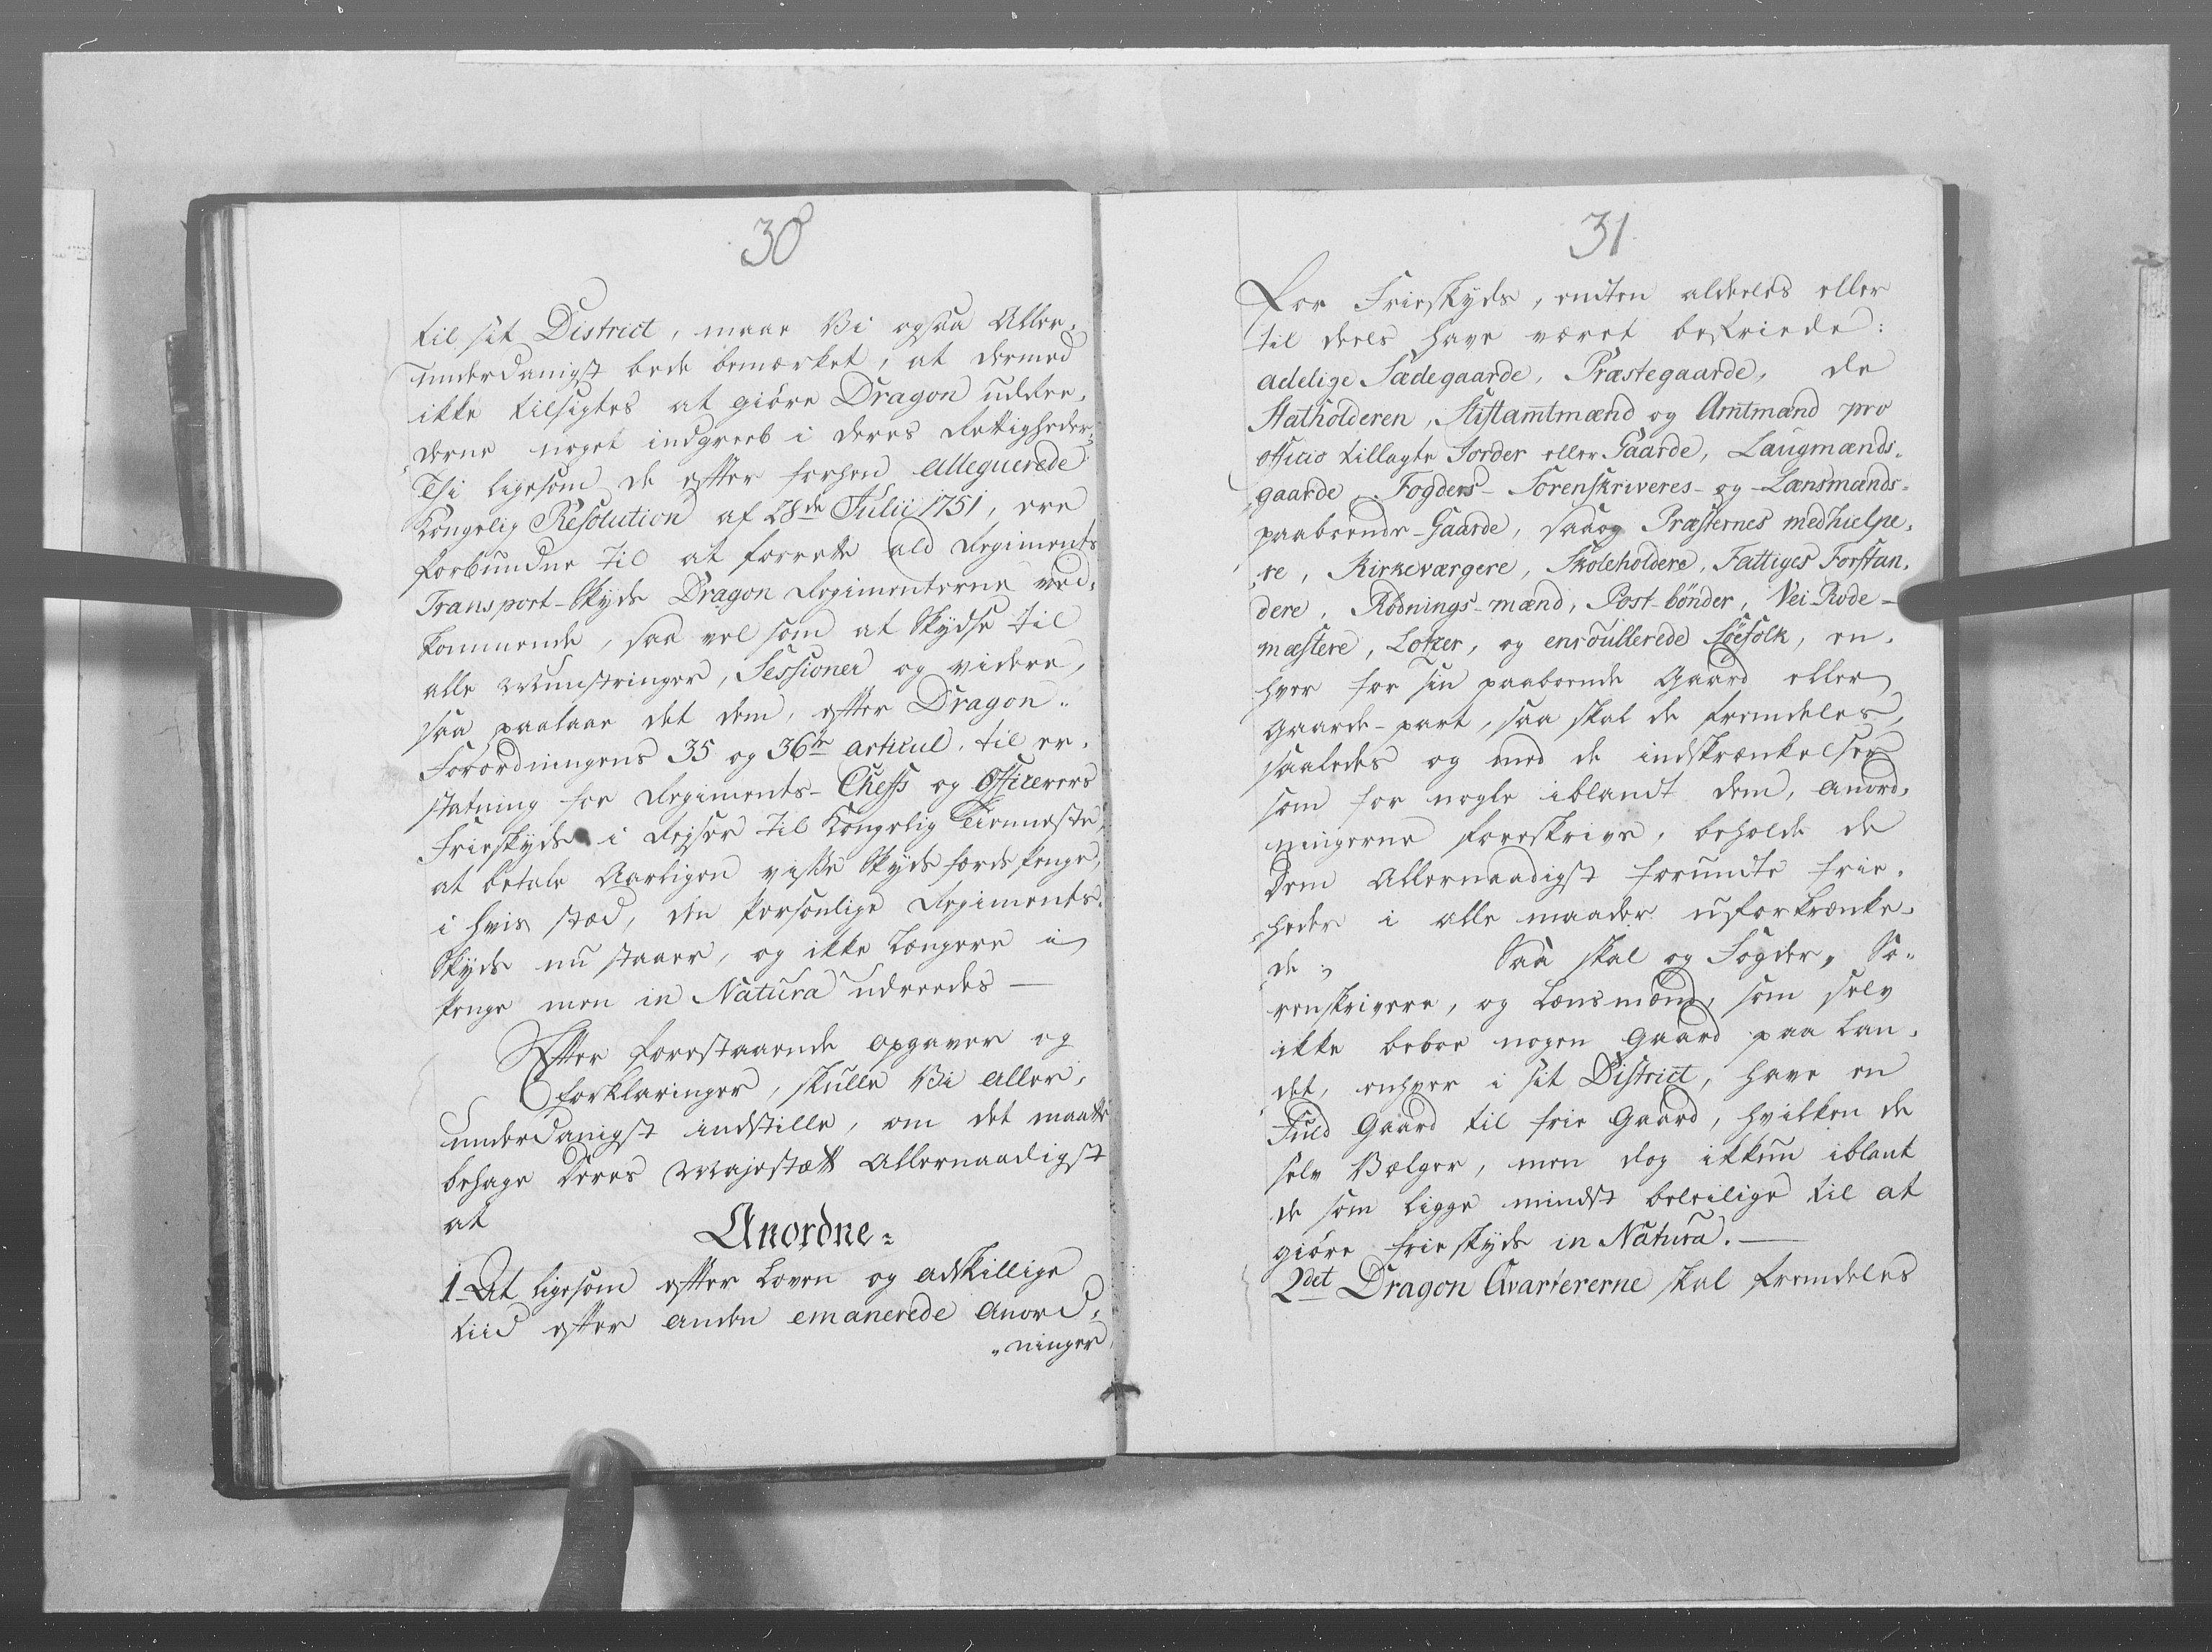 30
til sit District, maae Vi ogsaa Aller-
underdanigst bede bemærket, at dermed
ikke tilsigtes at giöre Dragon uddre-
derne noget indgreeb i deres Rettigheder,
Thi ligesom de efter forhen alleguerede
Kongelig Resolution af 28de Julii 1751, ere
forbundne til at forrette ald Regiments
Transport-Skyds Dragon Regimenterne ved-
kommende, saa vel som at Skydse til
alle Mynstringer, Sessioner og videre,
saa paalaae det dem, efter Dragon-
Forordningens 35 og 36te articul, til er-
statning for Regiments-Cheffs og Officerers
Frieskyds i Reyser til Kongelig Tienneste,
at betale Aarligen visse Skydsfærds penge,
i hvis stæd, den Personlige Regiments-
Skyds nu staaer, og ikke længere i
penge men in Natura udreedes —
Efter forestaaende opgaver og
forklaringer, skulle Vi aller-
underdanigst indstille, om det maatte
behage Deres Majestætt Allernaadigst
at
Anordne:
1 At ligesom efter Loven og adskillige
tiid efter anden emanerede anord-
"ninger
31
For Frieskyds, endten aldeeles eller
til deels have været befriede:
adelige Sædegaarde, Præstegaarde, de
Statholderen, Stiftamtmænd og Amtmænd pro
officio tillagte Jorder eller Gaarde, Laugmænds-
gaarde, Fogders- Sorenskriveres- og -Lænsmænds-
paaboende-Gaarde, saaog Præsternes medhielpe-
re, Kirkeværgere, Skoleholdere, Fattiges Forstan-
dere, Rodnings-mænd, Post-bönder, Vei-Rode-
mæstere, Lotzer, og enroullerede Söefolk, en-
hver for sin paaboende Gaard eller
Gaarde-part, saa skal de fremdeles,
saaledes og med de indskrænkelser
som for nogle iblandt dem, anord-
ningerne foreskrive, beholde de
dem Allernaadigst forundte frie-
heder i alle maader uforkrænke-
de; Saa skal og Fogder, So-
renskrivere, og Lænsmænd, som selv
ikke beboe nogen Gaard paa Lan-
det, enhver i sit District, have en
Fuld Gaard til frie Gaard, hvilken de
selv Vælger, men dog ikkun iblant
de som ligge mindst beleilige til at
giöre frie skyds in Natura. —
2det Dragon Qvarterene skal fremdeles